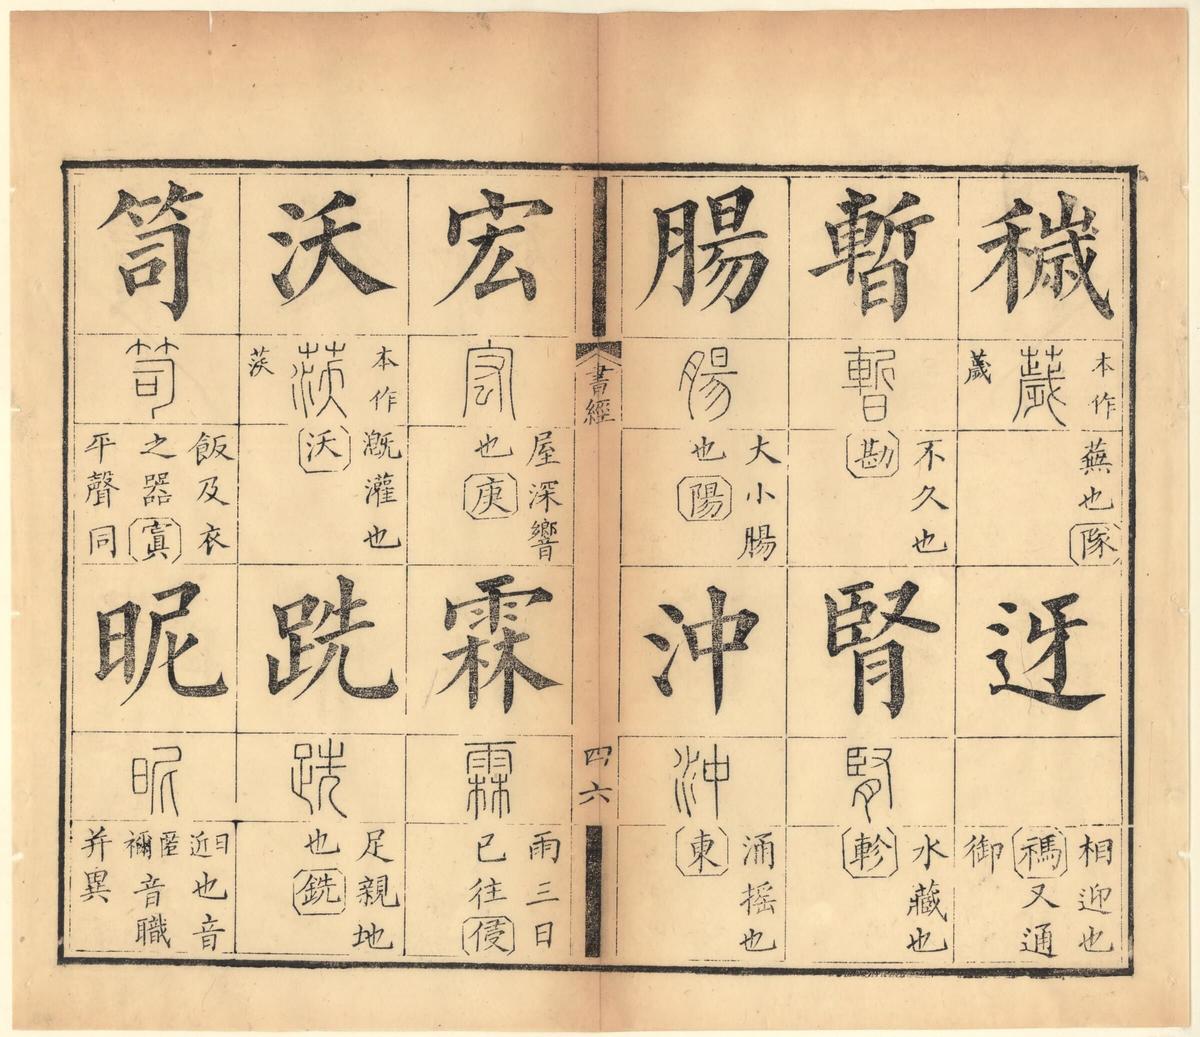 穢
薉
本作薉
蕪也隊
迓
相迎也
禡又通
御
暫
暫
不久也
勘
腎
腎
水藏也
軫
腸
腸
大小腸
也陽
沖
沖
涌摇也
東
書經
四六
宏
宏
屋深響
也庚
霖
霖
雨三日
已往侵
沃
本作
漑灌也
沃
跣
跣
足親地
也銑
笥
笥
飯及衣
之器寘
平聲同
昵
昵
日近也音
禰音職
并異